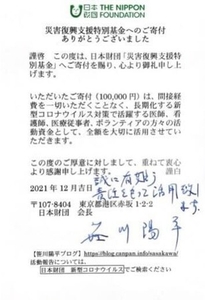 日本 THE NIPPON
財団 FOUNDATION
災害復興支援特別基金へのご寄付
ありがとうございました
謹啓　この度は、日本財団「災害復興支援特
別基金」へご寄付を賜り、心より御礼申し上
げます。
いただいたご寄付（100,000円）は、間接経
費を一切いただくことなく、長期化する新型
コロナウイルス対策で活躍する医師、看護
師、医療従事者、ボランティアの方々の活
動資金として、全額を大切に活用させていた
だきます。
この度のご厚意に対しまして、重ねて衷心
より感謝申し上げます。　謹白
誠に有難う
2021年12月吉日
責任をもって活用致し
ます。
〒107-8404　東京都港区赤坂1-2-2
日本財団　会長
笹川陽平
【笹川陽平ブログ】https://blog.canpan.info/sasakawa/
活動報告については、
日本財団　新型コロナウイルス でご検索ください